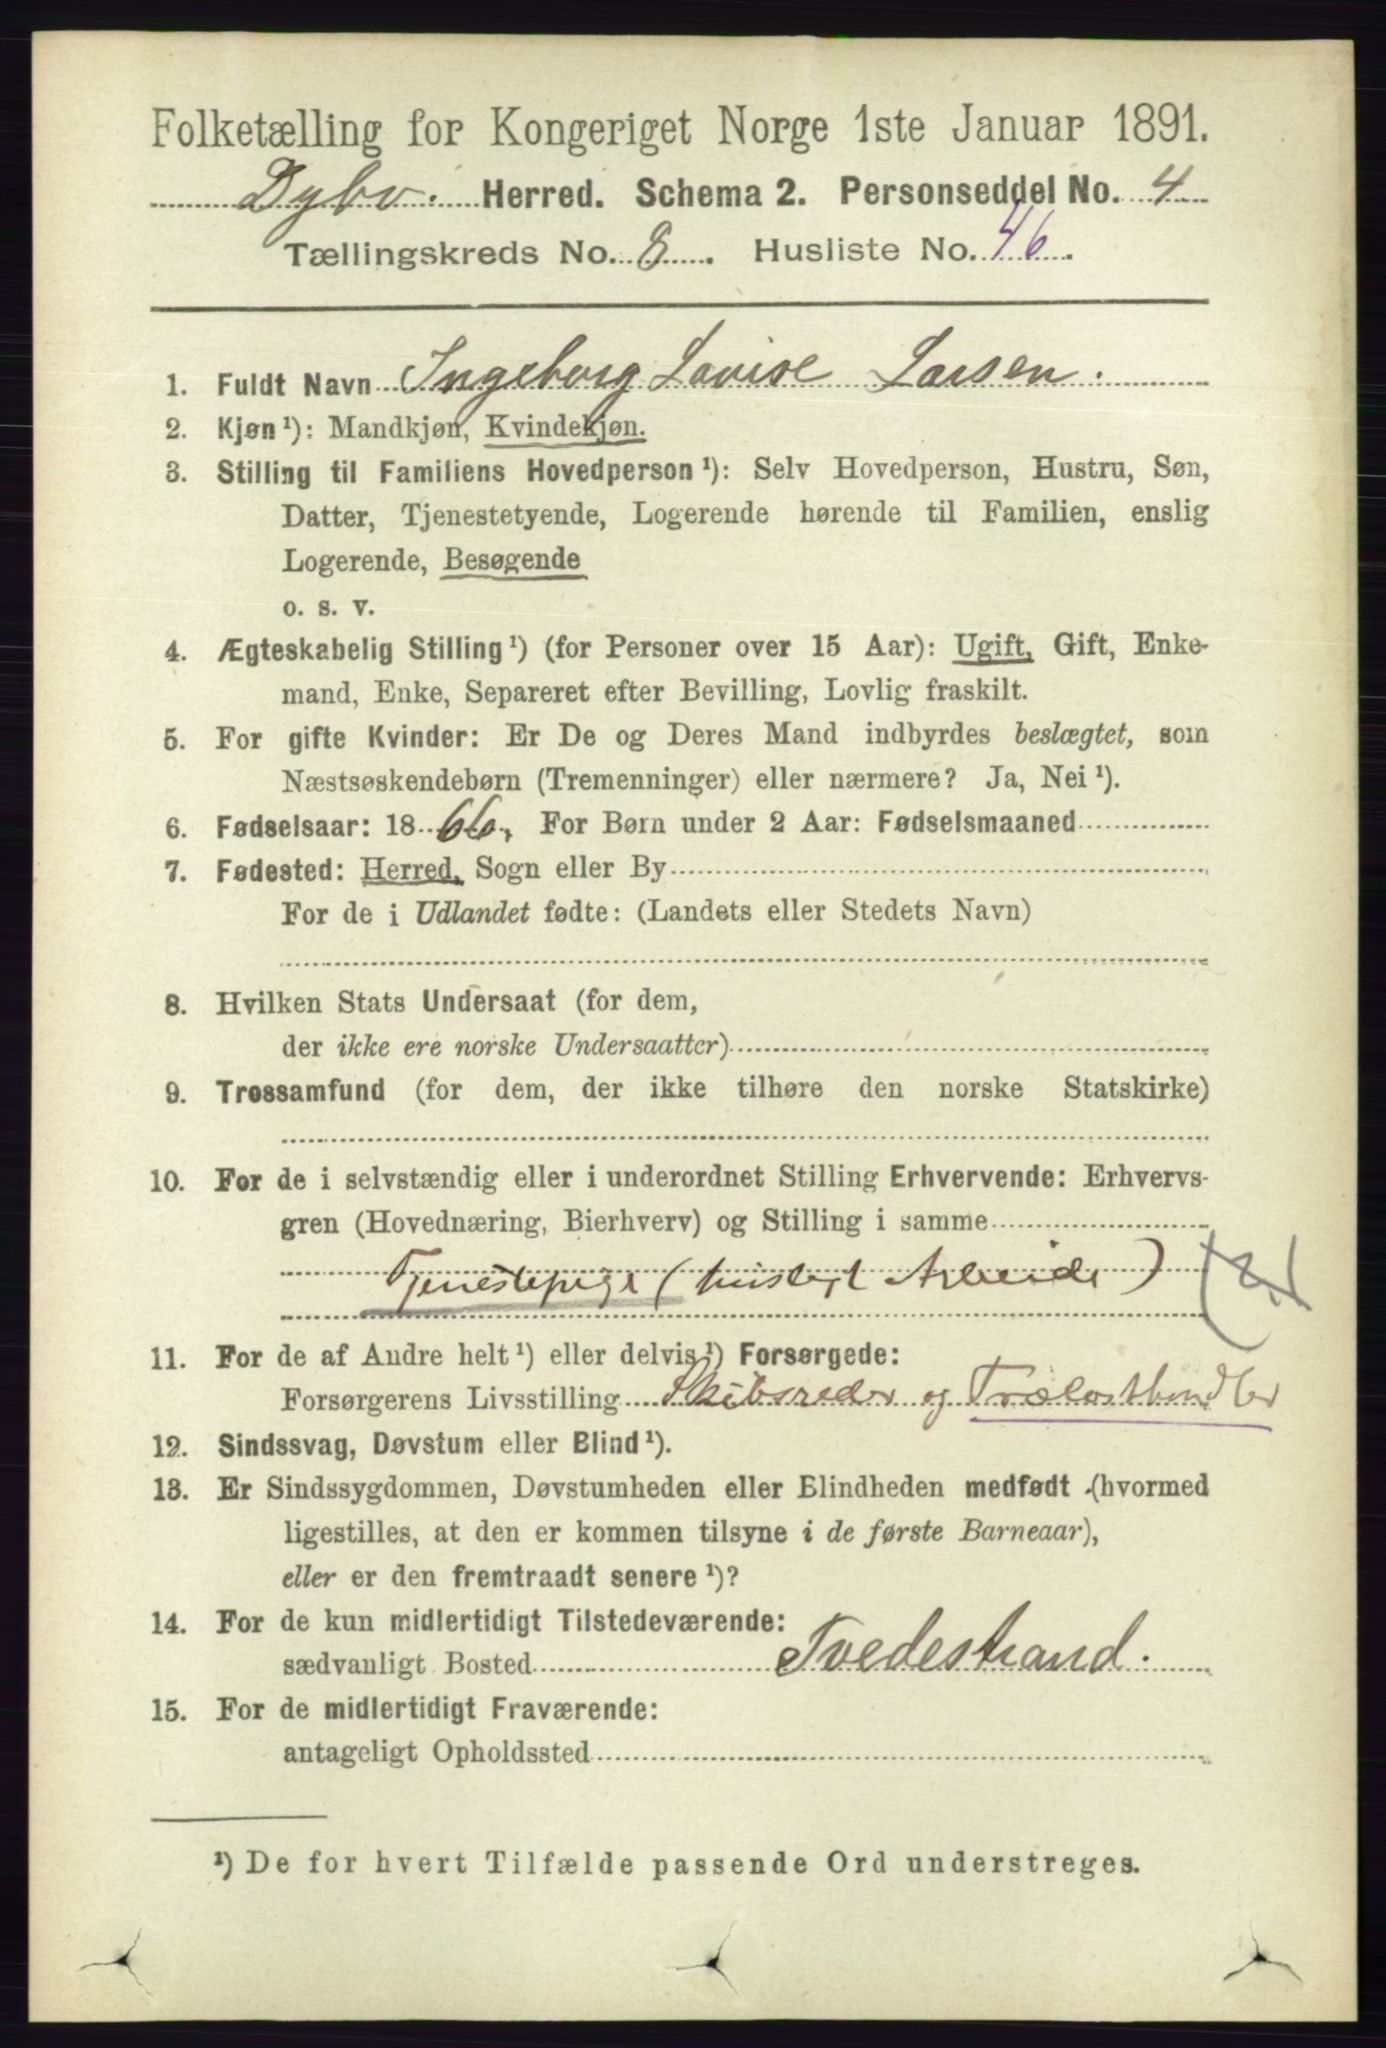 Folketælling for Kongeriget Norge 1ste Januar 1891.
Dybv. Herred. Schema 2. Personseddel No. 4
Tællingskreds No. 8. Husliste No. 46.
1. Fuldt Navn Ingeborg Lovise Larsen.
2. Kjøn ¹): Mandkjøn, Kvindekjøn.
3. Stilling til Familiens Hovedperson ¹): Selv Hovedperson, Hustru, Søn,
Datter, Tjenestetyende, Logerende hørende til Familien, enslig
Logerende, Besøgende
o. s. v.
4. Ægteskabelig Stilling ¹) (for Personer over 15 Aar): Ugift, Gift, Enke-
mand, Enke, Separeret efter Bevilling, Lovlig fraskilt.
5. For gifte Kvinder: Er De og Deres Mand indbyrdes beslægtet, som
Næstsøskendebørn (Tremenninger) eller nærmere? Ja, Nei ¹).
6. Fødselsaar: 1866, For Børn under 2 Aar: Fødselsmaaned
7. Fødested: Herred, Sogn eller By
For de i Udlandet fødte: (Landets eller Stedets Navn)
8. Hvilken Stats Undersaat (for dem,
der ikke ere norske Undersaatter)
9. Trossamfund (for dem, der ikke tilhøre den norske Statskirke)
10. For de i selvstændig eller i underordnet Stilling Erhvervende: Erhvervs-
gren (Hovednæring, Bierhverv) og Stilling i samme
Tjenestepige (husligt Arbeide)
11. For de af Andre helt ¹) eller delvis ¹) Forsørgede:
Forsørgerens Livsstilling Skibsreder og Trælasthandler
12. Sindssvag, Døvstum eller Blind ¹).
13. Er Sindssygdommen, Døvstumheden eller Blindheden medfødt (hvormed
ligestilles, at den er kommen tilsyne i de første Barneaar),
eller er den fremtraadt senere ¹)?
14. For de kun midlertidigt Tilstedeværende:
sædvanligt Bosted Tvedestrand.
15. For de midlertidigt Fraværende:
antageligt Opholdssted
¹) De for hvert Tilfælde passende Ord understreges.